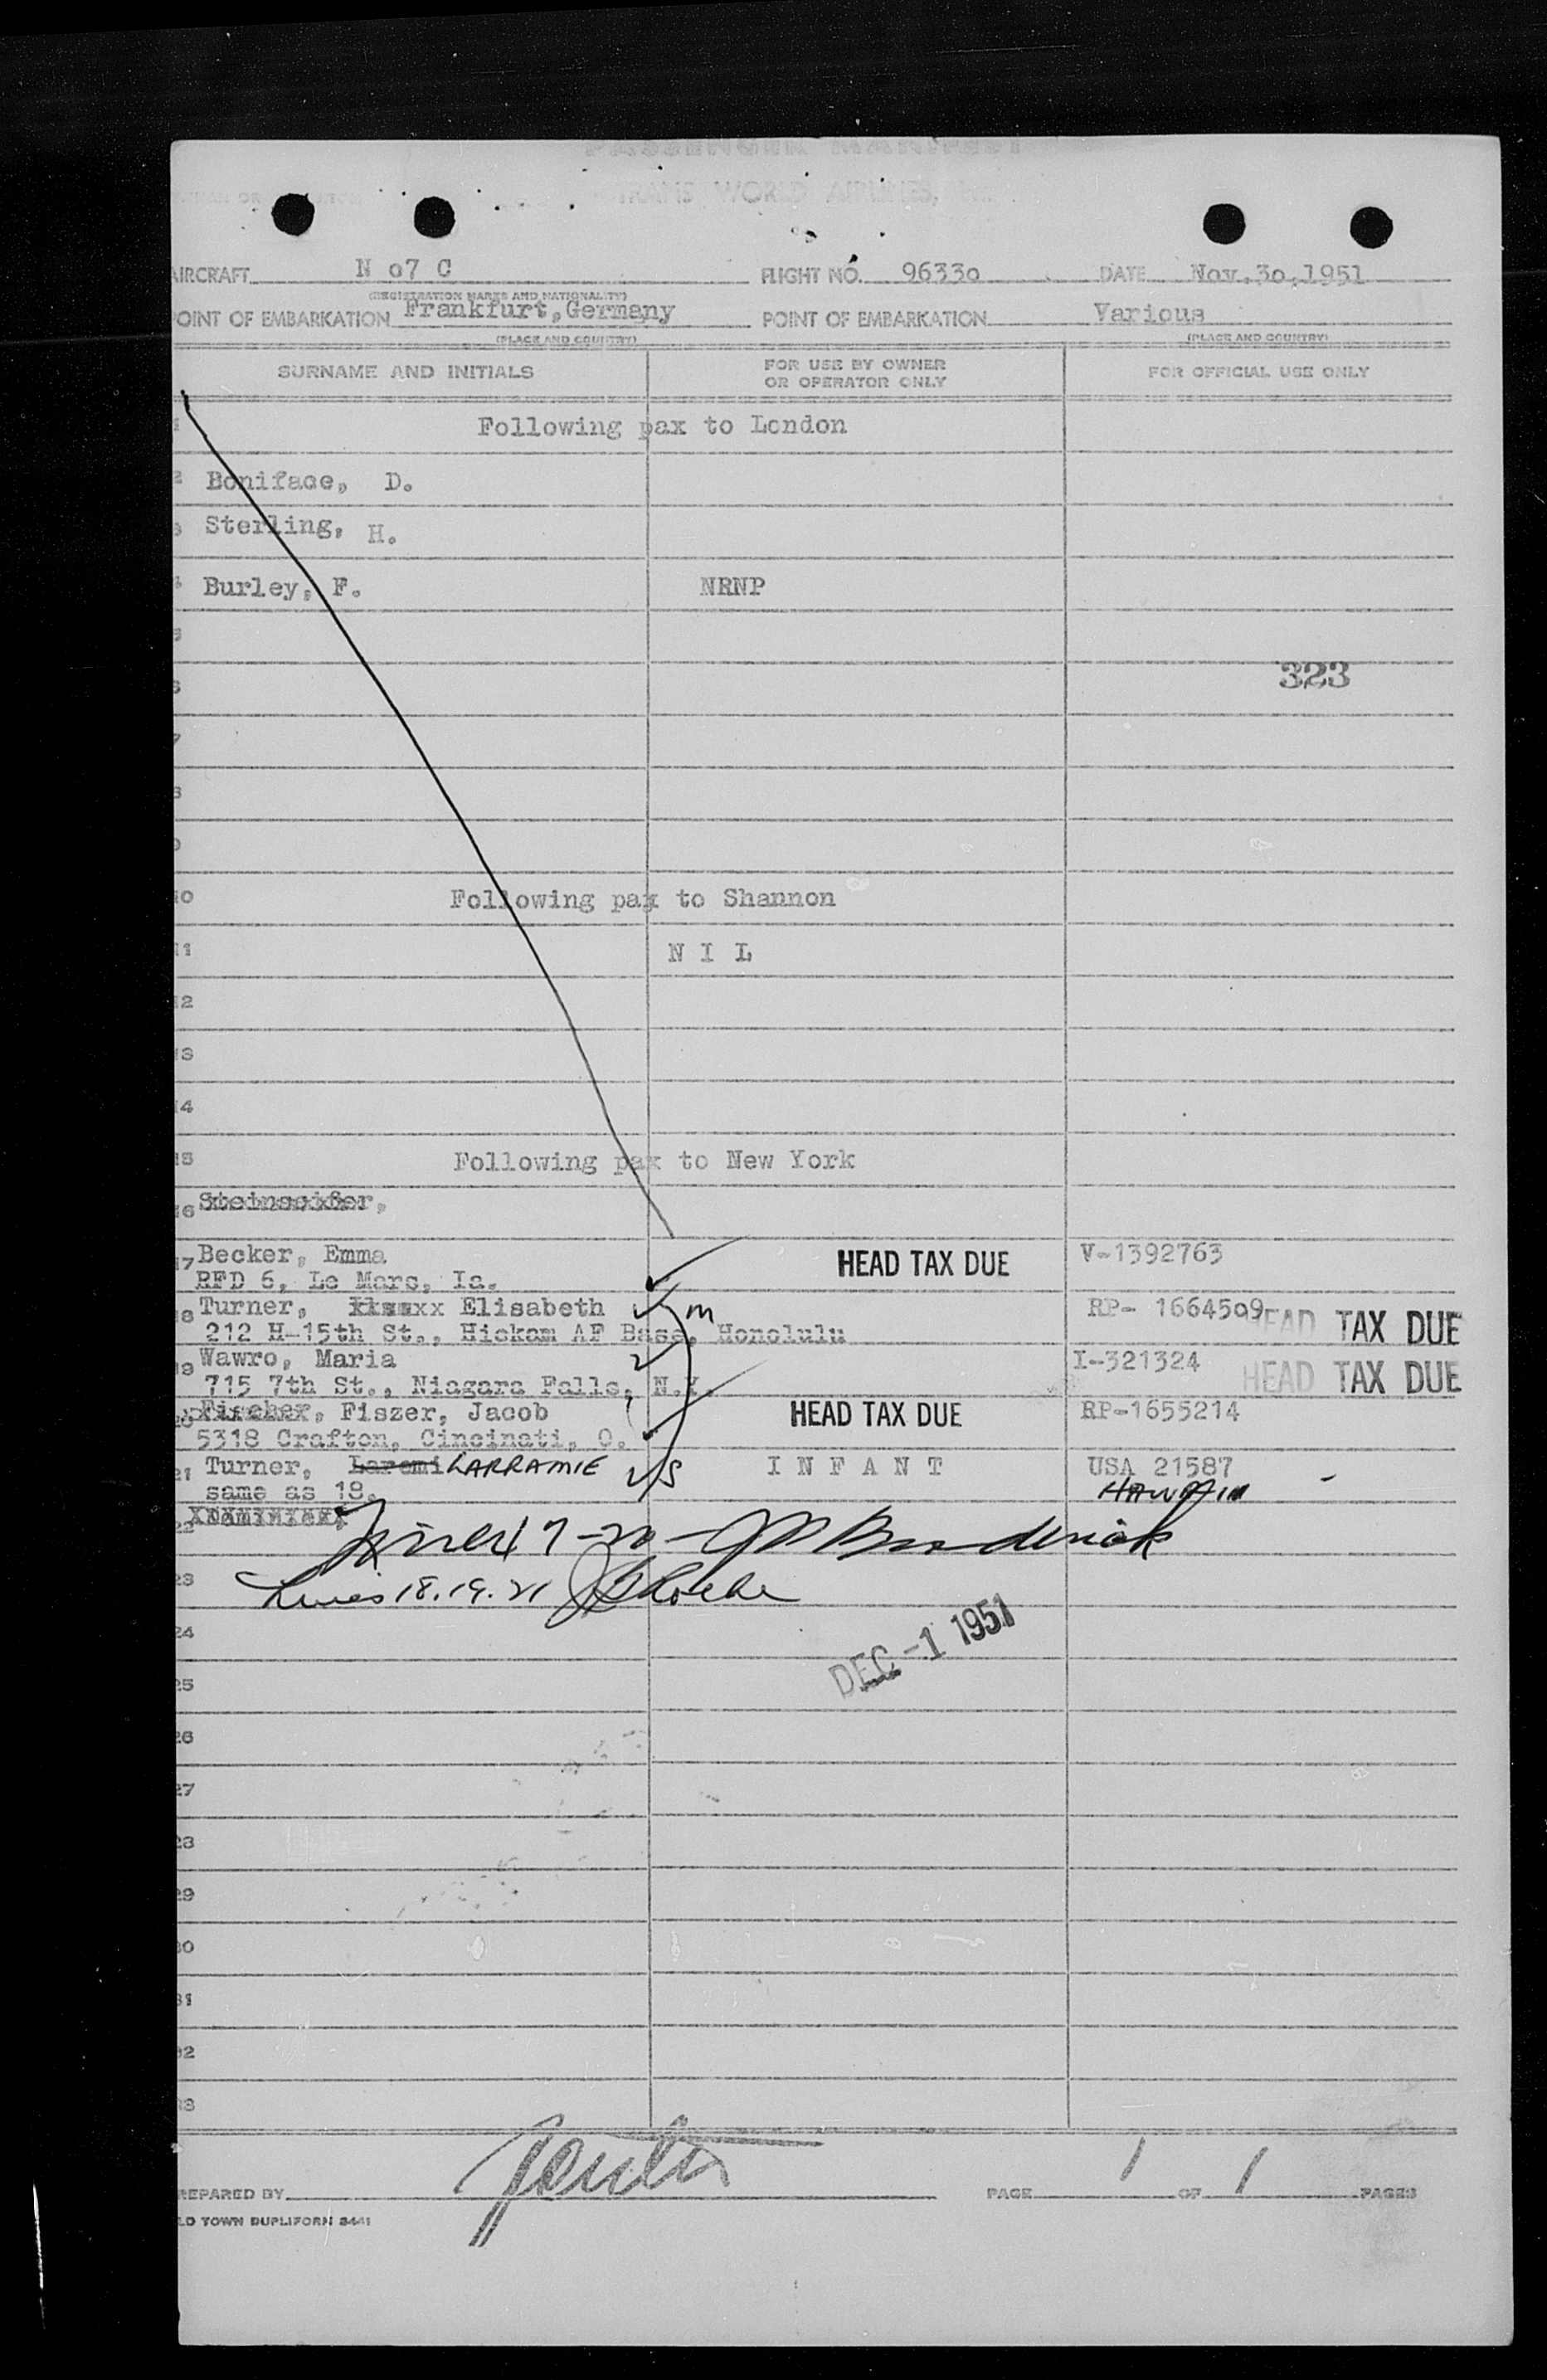 PASSENGER MANIFEST
TRANS WORLD AIRLINES,
AIRCRAFT N o7 C FLIGHT NO. 9633o DATE Nov.3o,1951
(REGISTRATION MARKS AND NATIONALITY)
POINT OF EMBARKATION Frankfurt,Germany POINT OF EMBARKATION Various
(PLACE AND COUNTRY) (PLACE AND COUNTRY)
SURNAME AND INITIALS FOR USE BY OWNER OR OPERATOR ONLY FOR OFFICIAL USE ONLY
1 Following pax to London
2 Boniface, D.
3 Sterling, H.
4 Burley, F. NRNP
5
323
6
7
8
9
10 Following pax to Shannon
11 N I L
12
13
14
15 Following pax to New York
16 Steinseifer,
17 Becker, Emma HEAD TAX DUE V-1392763
RFD 6, Le Mars, Ia.
18 Turner, Elisabeth m RP- 16645o9 HEAD TAX DUE
212 H-15th St., Hickam AF Base, Honolulu
19 Wawro, Maria I-321324 HEAD TAX DUE
715 7th St., Niagara Falls, N.Y.
20 Fischer, Fiszer, Jacob HEAD TAX DUE RP-1655214
5318 Crafton, Cincinati, O.
21 Turner, Laremi LARRAMIE I N F A N T USA 21587
same as 18.
22
Lines 18.19.21
23
24
DEC -1 1951
25
26
27
28
29
30
31
32
33
PREPARED BY PAGE 1 OF 1 PAGES
OLD TOWN DUPLIFORM 3441